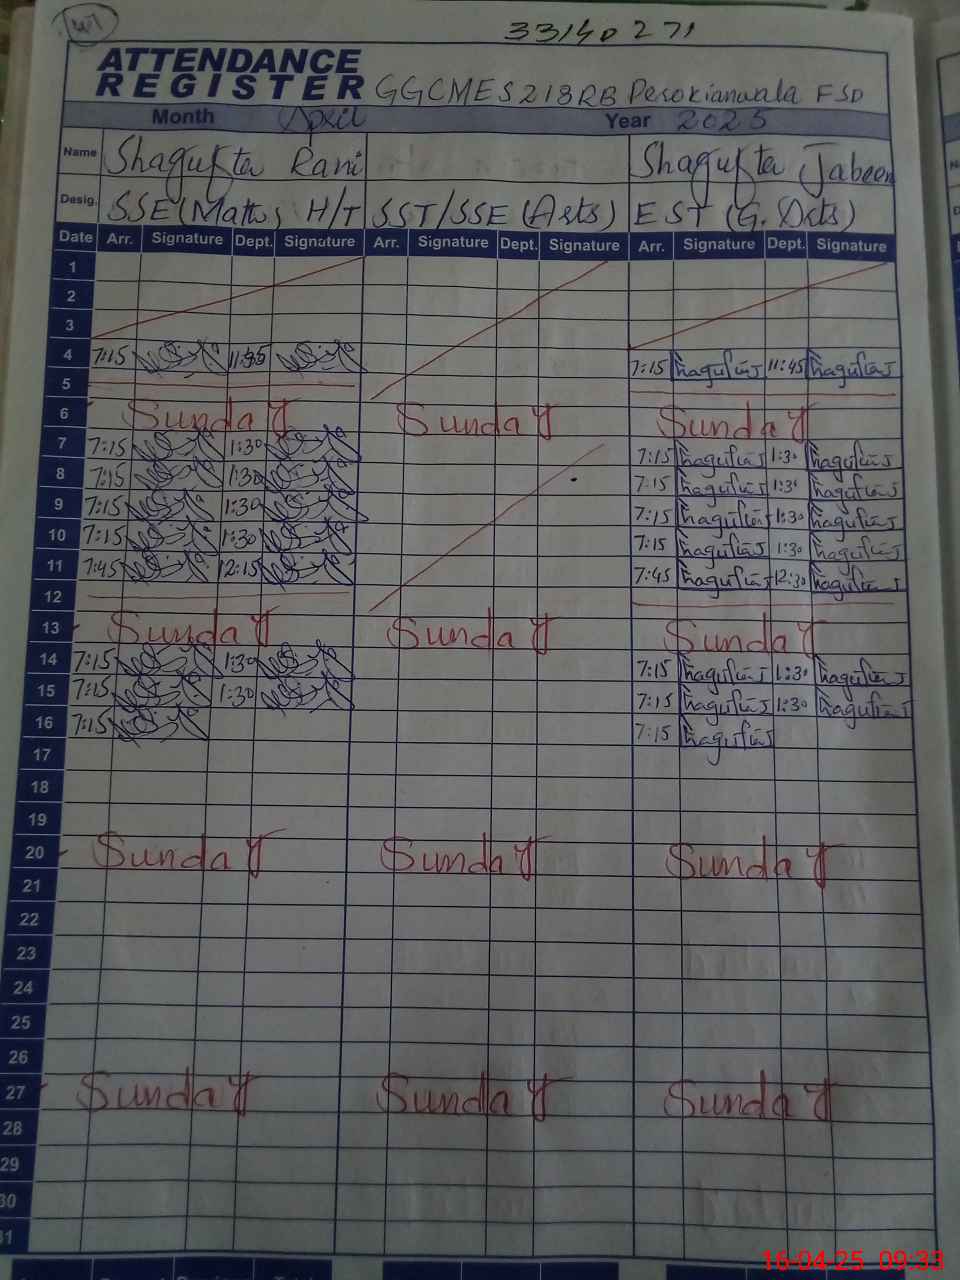 33140271
ATTENDANCE
REGISTER GGCMES 218RB Pesokianwala FSD
Month April Year 2025
Name Shagufta Rani Shagufta Jabeen
Desig. SSE (Math), H/T SST/SSE (Arts) EST (G. Arts)
Date Arr. Signature Dept. Signature Arr. Signature Dept. Signature Arr. Signature Dept. Signature
1
2
3
4 7:15 11:35 7:15 11:45
5
6 Sunday Sunday Sunday
7 7:15 1:30 7:15 1:30
8 7:15 1:30 7:15 1:30
9 7:15 1:30 7:15 1:30
10 7:15 1:30 7:15 1:30
11 7:45 12:15 7:45 12:30
12
13 Sunday Sunday Sunday
14 7:15 1:30 7:15 1:30
15 7:15 1:30 7:15 1:30
16 7:15 7:15
17
18
19
20 Sunday Sunday Sunday
21
22
23
24
25
26
27 Sunday Sunday Sunday
28
29
30
31
16-04-25 09:33